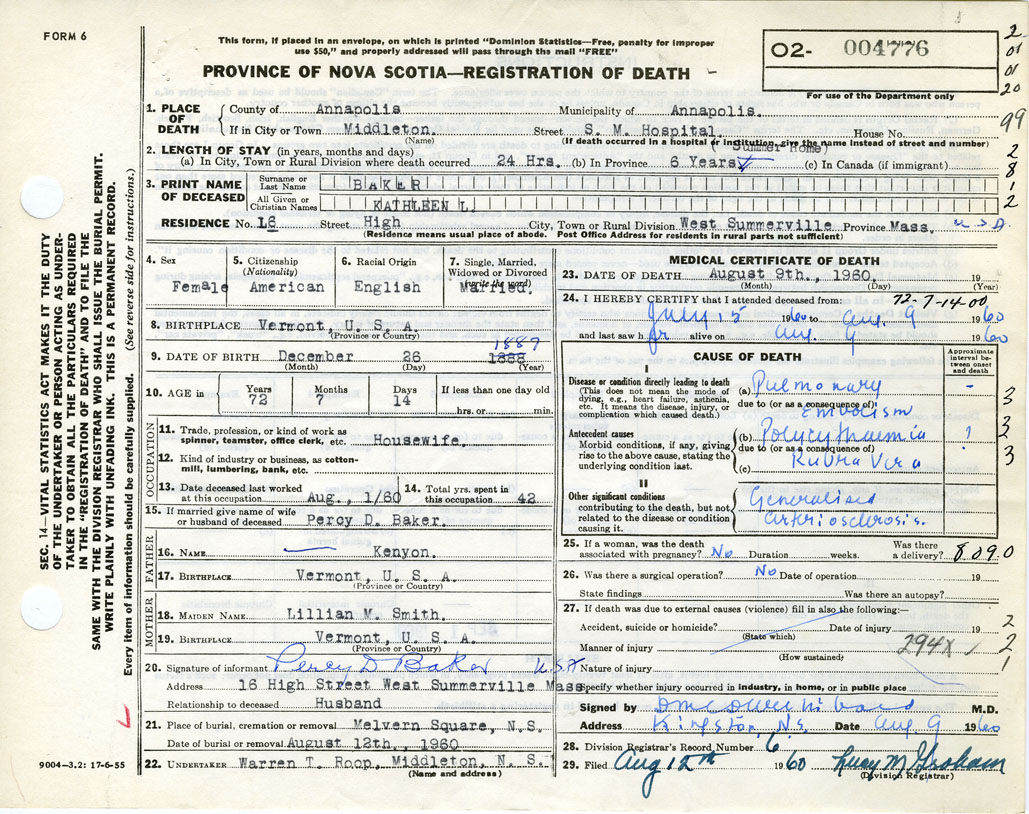 FORM 6
This form, if placed in an envelope, on which is printed "Dominion Statistics—Free, penalty for improper
use $50," and properly addressed will pass through the mail "FREE"
PROVINCE OF NOVA SCOTIA—REGISTRATION OF DEATH
O2- 004776
For use of the Department only
2
01
01
20
99
2
8
1
2
1. PLACE OF DEATH
County of Annapolis Municipality of Annapolis.
If in City or Town Middleton. Street S. M. Hospital. House No.
(Name) (If death occurred in a hospital or institution, give the name instead of street and number)
2. LENGTH OF STAY (in years, months and days) (Summer Home)
(a) In City, Town or Rural Division where death occurred 24 Hrs. (b) In Province 6 Years (c) In Canada (if immigrant)
3. PRINT NAME OF DECEASED
Surname or Last Name BAKER
All Given or Christian Names KATHLEEN L.
RESIDENCE No. 16 Street High City, Town or Rural Division West Summerville Province Mass. U.S.A.
(Residence means usual place of abode. Post Office Address for residents in rural parts not sufficient)
4. Sex
Female
5. Citizenship
(Nationality)
American
6. Racial Origin
English
7. Single, Married,
Widowed or Divorced
(write the word)
Married.
8. BIRTHPLACE Vermont, U. S. A.
(Province or Country)
9. DATE OF BIRTH December 26 1888 1887
(Month) (Day) (Year)
10. AGE in
Years 72
Months 7
Days 14
If less than one day old
hrs. or min.
OCCUPATION
11. Trade, profession, or kind of work as
spinner, teamster, office clerk, etc. Housewife.
12. Kind of industry or business, as cotton-
mill, lumbering, bank, etc.
13. Date deceased last worked
at this occupation Aug., 1/60
14. Total yrs. spent in
this occupation 42
15. If married give name of wife
or husband of deceased Percy D. Baker.
FATHER
16. NAME Kenyon.
17. BIRTHPLACE Vermont, U. S. A.
(Province or Country)
MOTHER
18. MAIDEN NAME Lillian M. Smith.
19. BIRTHPLACE Vermont, U. S. A.
(Province or Country)
20. Signature of informant Percy D Baker U.S.A
Address 16 High Street West Summerville Mass
Relationship to deceased Husband
21. Place of burial, cremation or removal Melvern Square, N.S.
Date of burial or removal August 12th., 1960
22. UNDERTAKER Warren T. Roop, Middleton, N. S.
(Name and address)
9004—3.2: 17-6-55
SEC. 14—VITAL STATISTICS ACT MAKES IT THE DUTY
OF THE UNDERTAKER OR PERSON ACTING AS UNDER-
TAKER TO OBTAIN ALL THE PARTICULARS REQUIRED
IN THE "REGISTRATION OF DEATH" AND TO FILE THE
SAME WITH THE DIVISION REGISTRAR WHO SHALL ISSUE THE BURIAL PERMIT.
WRITE PLAINLY WITH UNFADING INK. THIS IS A PERMANENT RECORD.
Every item of information should be carefully supplied. (See reverse side for instructions.)
MEDICAL CERTIFICATE OF DEATH
23. DATE OF DEATH August 9th., 1960. 19
(Month) (Day) (Year)
24. I HEREBY CERTIFY that I attended deceased from: 72-7-14-00
July 15 1960 to Aug. 9 1960
and last saw h er alive on Aug. 9 1960
CAUSE OF DEATH
Approximate interval between onset and death
I
Disease or condition directly leading to death
(This does not mean the mode of
dying, e.g., heart failure, asthenia,
etc. It means the disease, injury, or
complication which caused death.)
(a) Pulmonary
due to (or as a consequence of)
Embolism
Antecedent causes
Morbid conditions, if any, giving
rise to the above cause, stating the
underlying condition last.
(b) Polycythaemia
due to (or as a consequence of)
(c) Rubra Vera
II
Other significant conditions
contributing to the death, but not
related to the disease or condition
causing it.
Generalised
arteriosclerosis.
3
3
2
3
25. If a woman, was the death
associated with pregnancy? No Duration weeks. Was there
a delivery? 8090
26. Was there a surgical operation? No Date of operation 19
State findings Was there an autopsy?
27. If death was due to external causes (violence) fill in also the following:—
Accident, suicide or homicide? Date of injury 19
(State which)
Manner of injury 294X
(How sustained)
Nature of injury
Specify whether injury occurred in industry, in home, or in public place
2
2
1
Signed by M.D.
Address Kingston, N.S. Date Aug 9 1960
28. Division Registrar's Record Number 6
29. Filed Aug 12th 1960 Lucy M Graham
(Division Registrar)